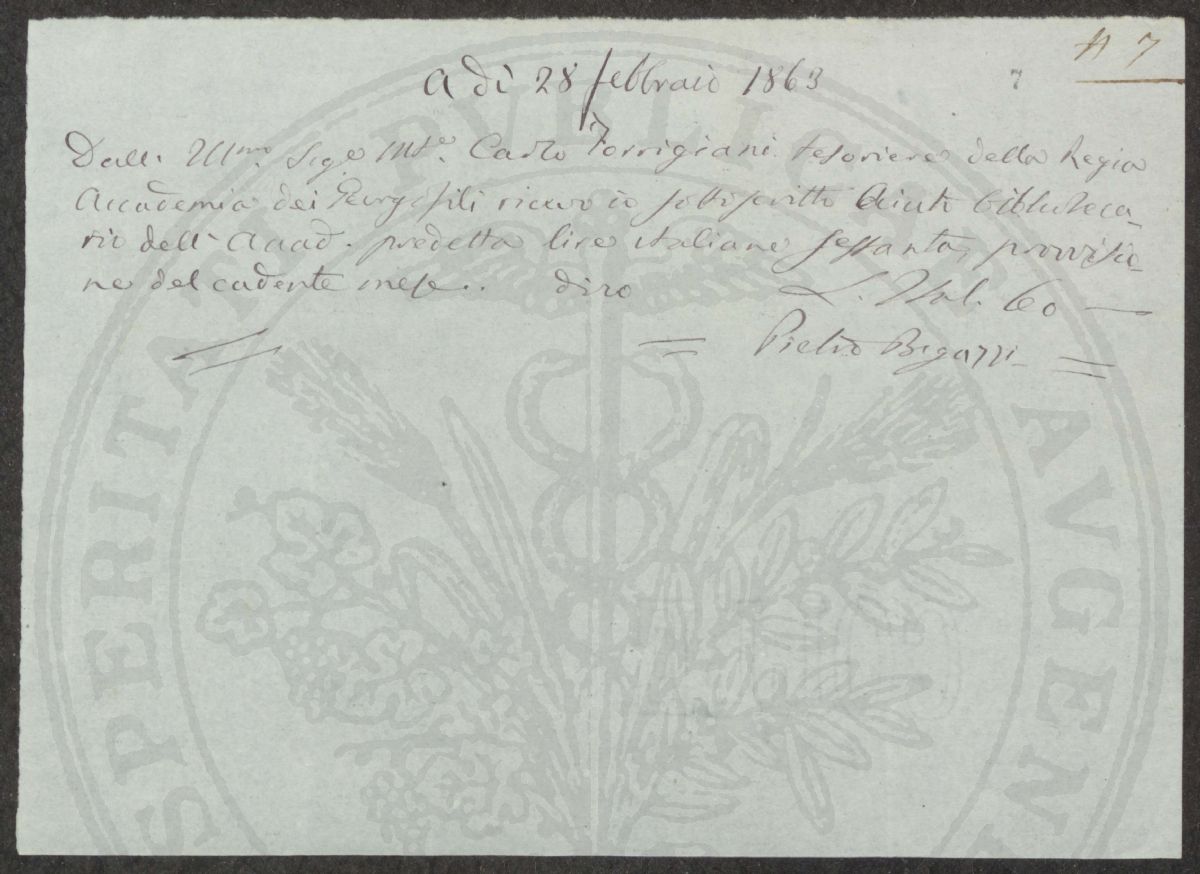 # 7
7
A dì 28 febbraio 1863
Dall' Illmo. Sige. Mse. Carlo Torrigiani tesoriere della Regia
Accademia dei Georgofili ricevo io sottoscritto Aiuto biblioteca-
rio dell' Accad. predetta lire italiane sessanta, provvisio-
ne del cadente mese.. dico L. Ital. 60 —
Pietro Bigazzi
PROSPERITATI PVBLICAE AVGENDAE